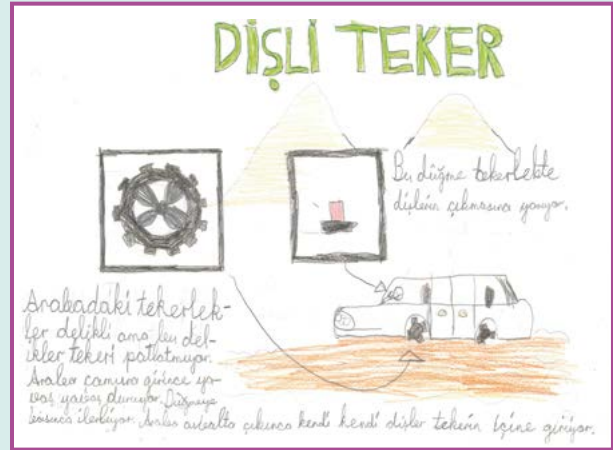 DİŞLİ TEKER
Bu düğme tekerlekte
dişlerin çıkmasına yarıyor.
Arabadaki tekerlek-
ler delikli ama bu del-
ikler tekeri patlatmıyor.
Araba çamura girince ya-
vaş yavaş duruyor. Düğmeye
basınca ilerliyor. Araba asfalta çıkınca kendi kendi dişler tekerin içine giriyor.